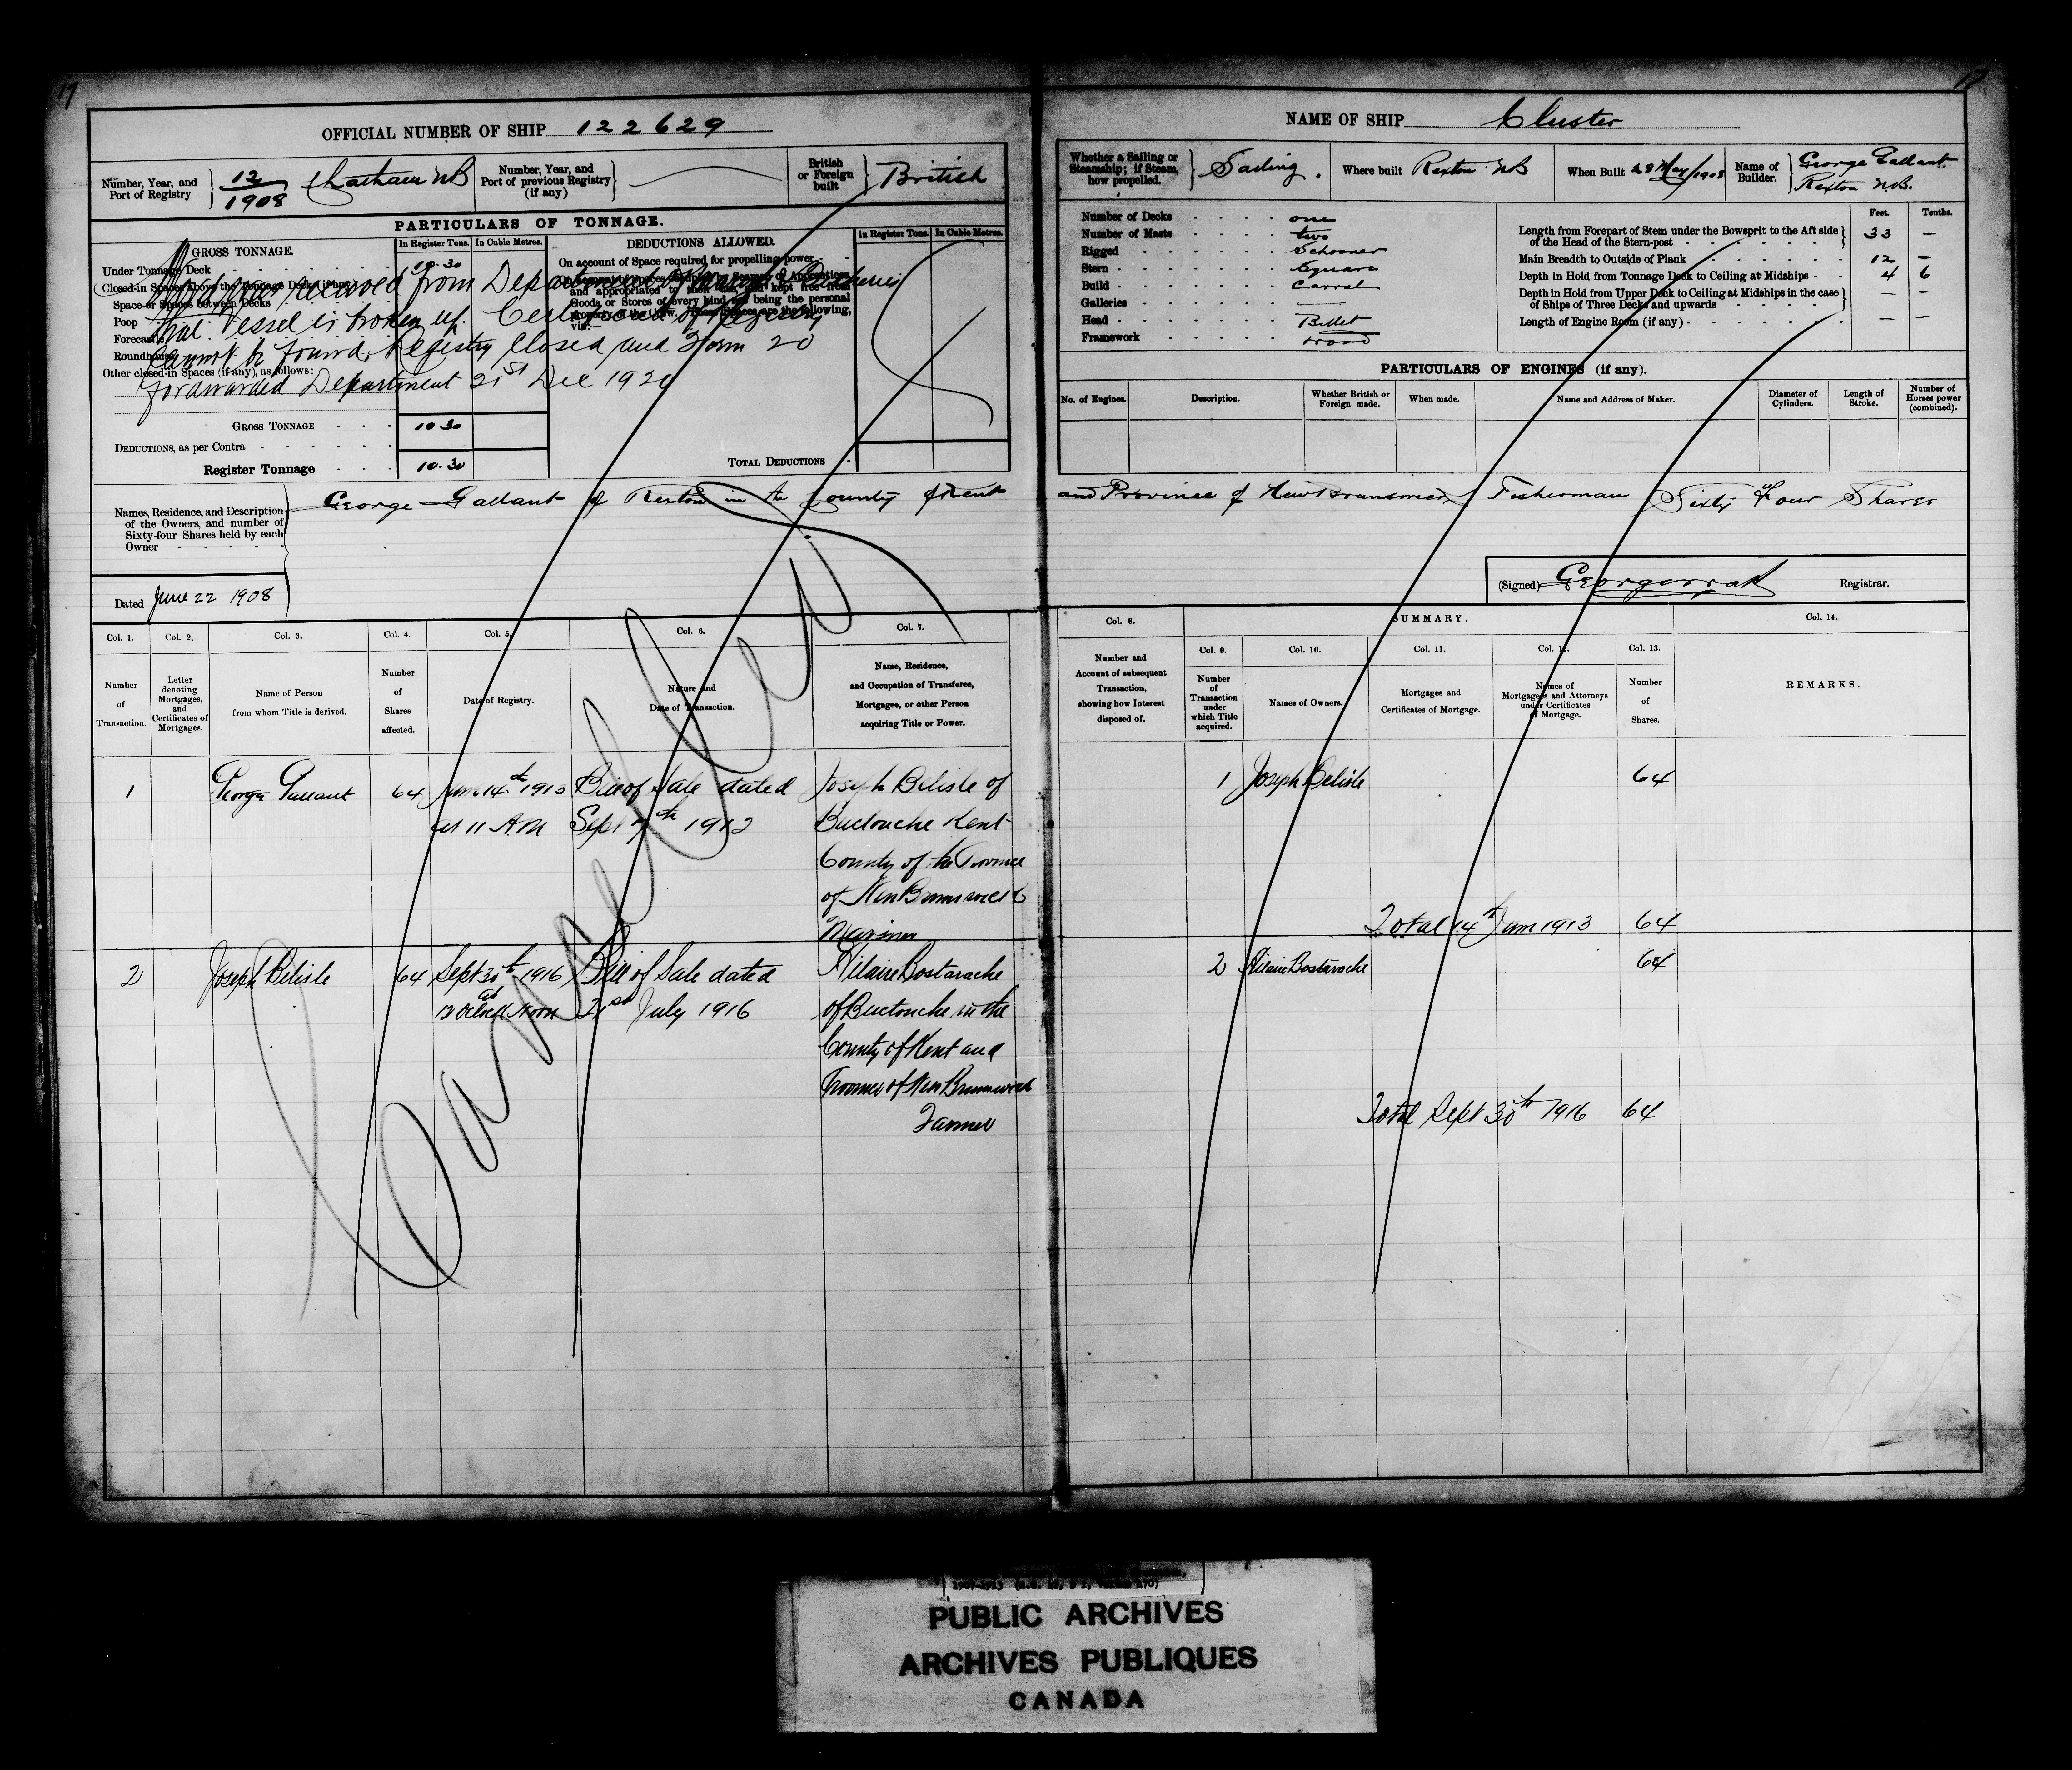 17
17
OFFICIAL NUMBER OF SHIP 122629
Number, Year, and Port of Registry 12/1908 Chatham NB
Number, Year, and Port of previous Registry (if any)
British or Foreign built British
PARTICULARS OF TONNAGE.
GROSS TONNAGE.
In Register Tons. In Cubic Metres.
DEDUCTIONS ALLOWED.
In Register Tons. In Cubic Metres.
Under Tonnage Deck 10.30
On account of Space required for propelling power
Closed-in Spaces above the Tonnage Deck, if any
Space or Spaces between Decks
Poop
Forecastle
Roundhouse
Other closed-in Spaces (if any), as follows:
received from Department of Marine & Fisheries
that Vessel is broken up. Certificate of Registry
cannot be found. Registry Closed and Form 20
forwarded Department 21st Dec 1920
GROSS TONNAGE 10.30
DEDUCTIONS, as per Contra
Register Tonnage 10.30
TOTAL DEDUCTIONS
Names, Residence, and Description of the Owners, and number of Sixty-four Shares held by each Owner
George Gallant of Rexton in the County of Kent
Dated June 22 1908
Col. 1. Col. 2. Col. 3. Col. 4. Col. 5. Col. 6. Col. 7.
Number of Transaction.
Letter denoting Mortgages, and Certificates of Mortgages.
Name of Person from whom Title is derived.
Number of Shares affected.
Date of Registry.
Nature and Date of Transaction.
Name, Residence, and Occupation of Transferee, Mortgagee, or other Person acquiring Title or Power.
1 George Gallant 64 June 14th 1913 Bill of Sale dated Joseph Belisle of
at 11 A.M Sept 7th 1912 Buctouche Kent
County of the Province
of New Brunswick
Mariner
2 Joseph Belisle 64 Sept 30th 1916 Bill of Sale dated Hilaire Bastarache
at
12 Oclock Noon 21st July 1916 of Buctouche in the
County of Kent and
Province of New Brunswick
Farmer
Cancelled
NAME OF SHIP Cluster
Whether a Sailing or Steamship; if Steam, how propelled. Sailing.
Where built Rexton NB
When Built 28 May/1908
Name of Builder. George Gallant Rexton N.B.
Number of Decks one
Number of Masts two
Rigged Schooner
Stern Square
Build Carval
Galleries —
Head Billet
Framework wood
Feet. Tenths.
Length from Forepart of Stem under the Bowsprit to the Aft side of the Head of the Stern-post 33 —
Main Breadth to Outside of Plank 12 —
Depth in Hold from Tonnage Deck to Ceiling at Midships 4 6
Depth in Hold from Upper Deck to Ceiling at Midships in the case of Ships of Three Decks and upwards — —
Length of Engine Room (if any) — —
PARTICULARS OF ENGINES (if any).
No. of Engines. Description. Whether British or Foreign made. When made. Name and Address of Maker. Diameter of Cylinders. Length of Stroke. Number of Horses power (combined).
and Province of New Brunswick Fisherman Sixty Four Shares
(Signed) Registrar.
Col. 8.
SUMMARY.
Col. 14.
Col. 9. Col. 10. Col. 11. Col. 12. Col. 13.
Number and Account of subsequent Transaction, showing how Interest disposed of.
Number of Transaction under which Title acquired.
Names of Owners.
Mortgages and Certificates of Mortgage.
Names of Mortgagees and Attorneys under Certificates of Mortgage.
Number of Shares.
REMARKS.
1 Joseph Belisle 64
Total 14th June 1913 64
2 Hilaire Bastarache 64
Total Sept 30th 1916 64
PUBLIC ARCHIVES
ARCHIVES PUBLIQUES
CANADA